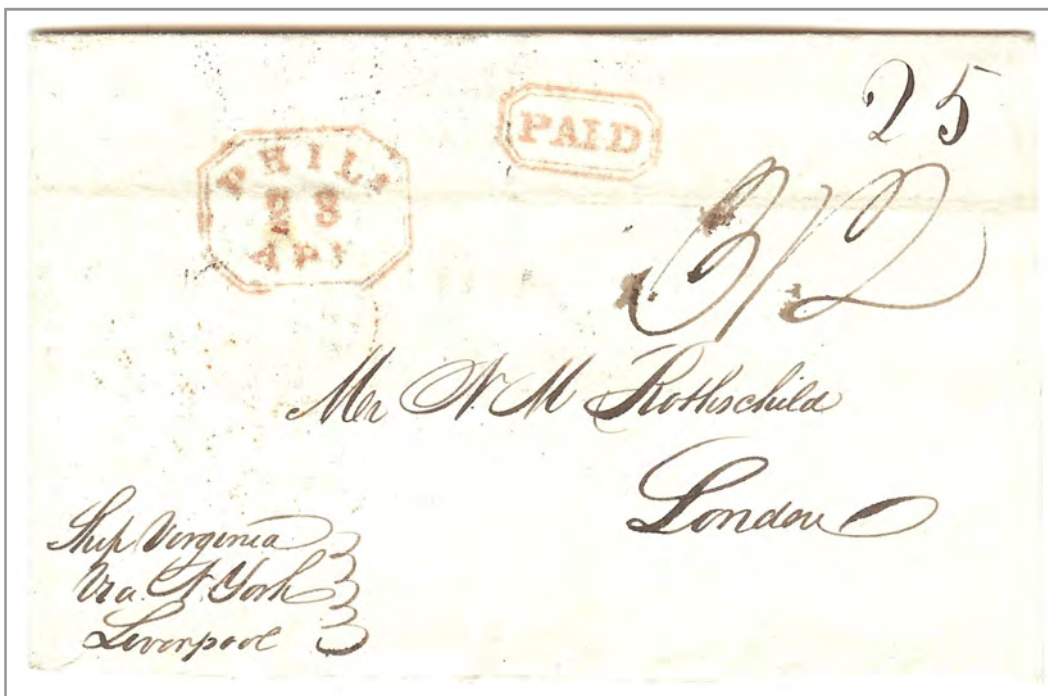 25
PAID
PHILA
28
APL
3/2
Mr N M Rothschild
London
Ship Virginia
Via N. York
Liverpool